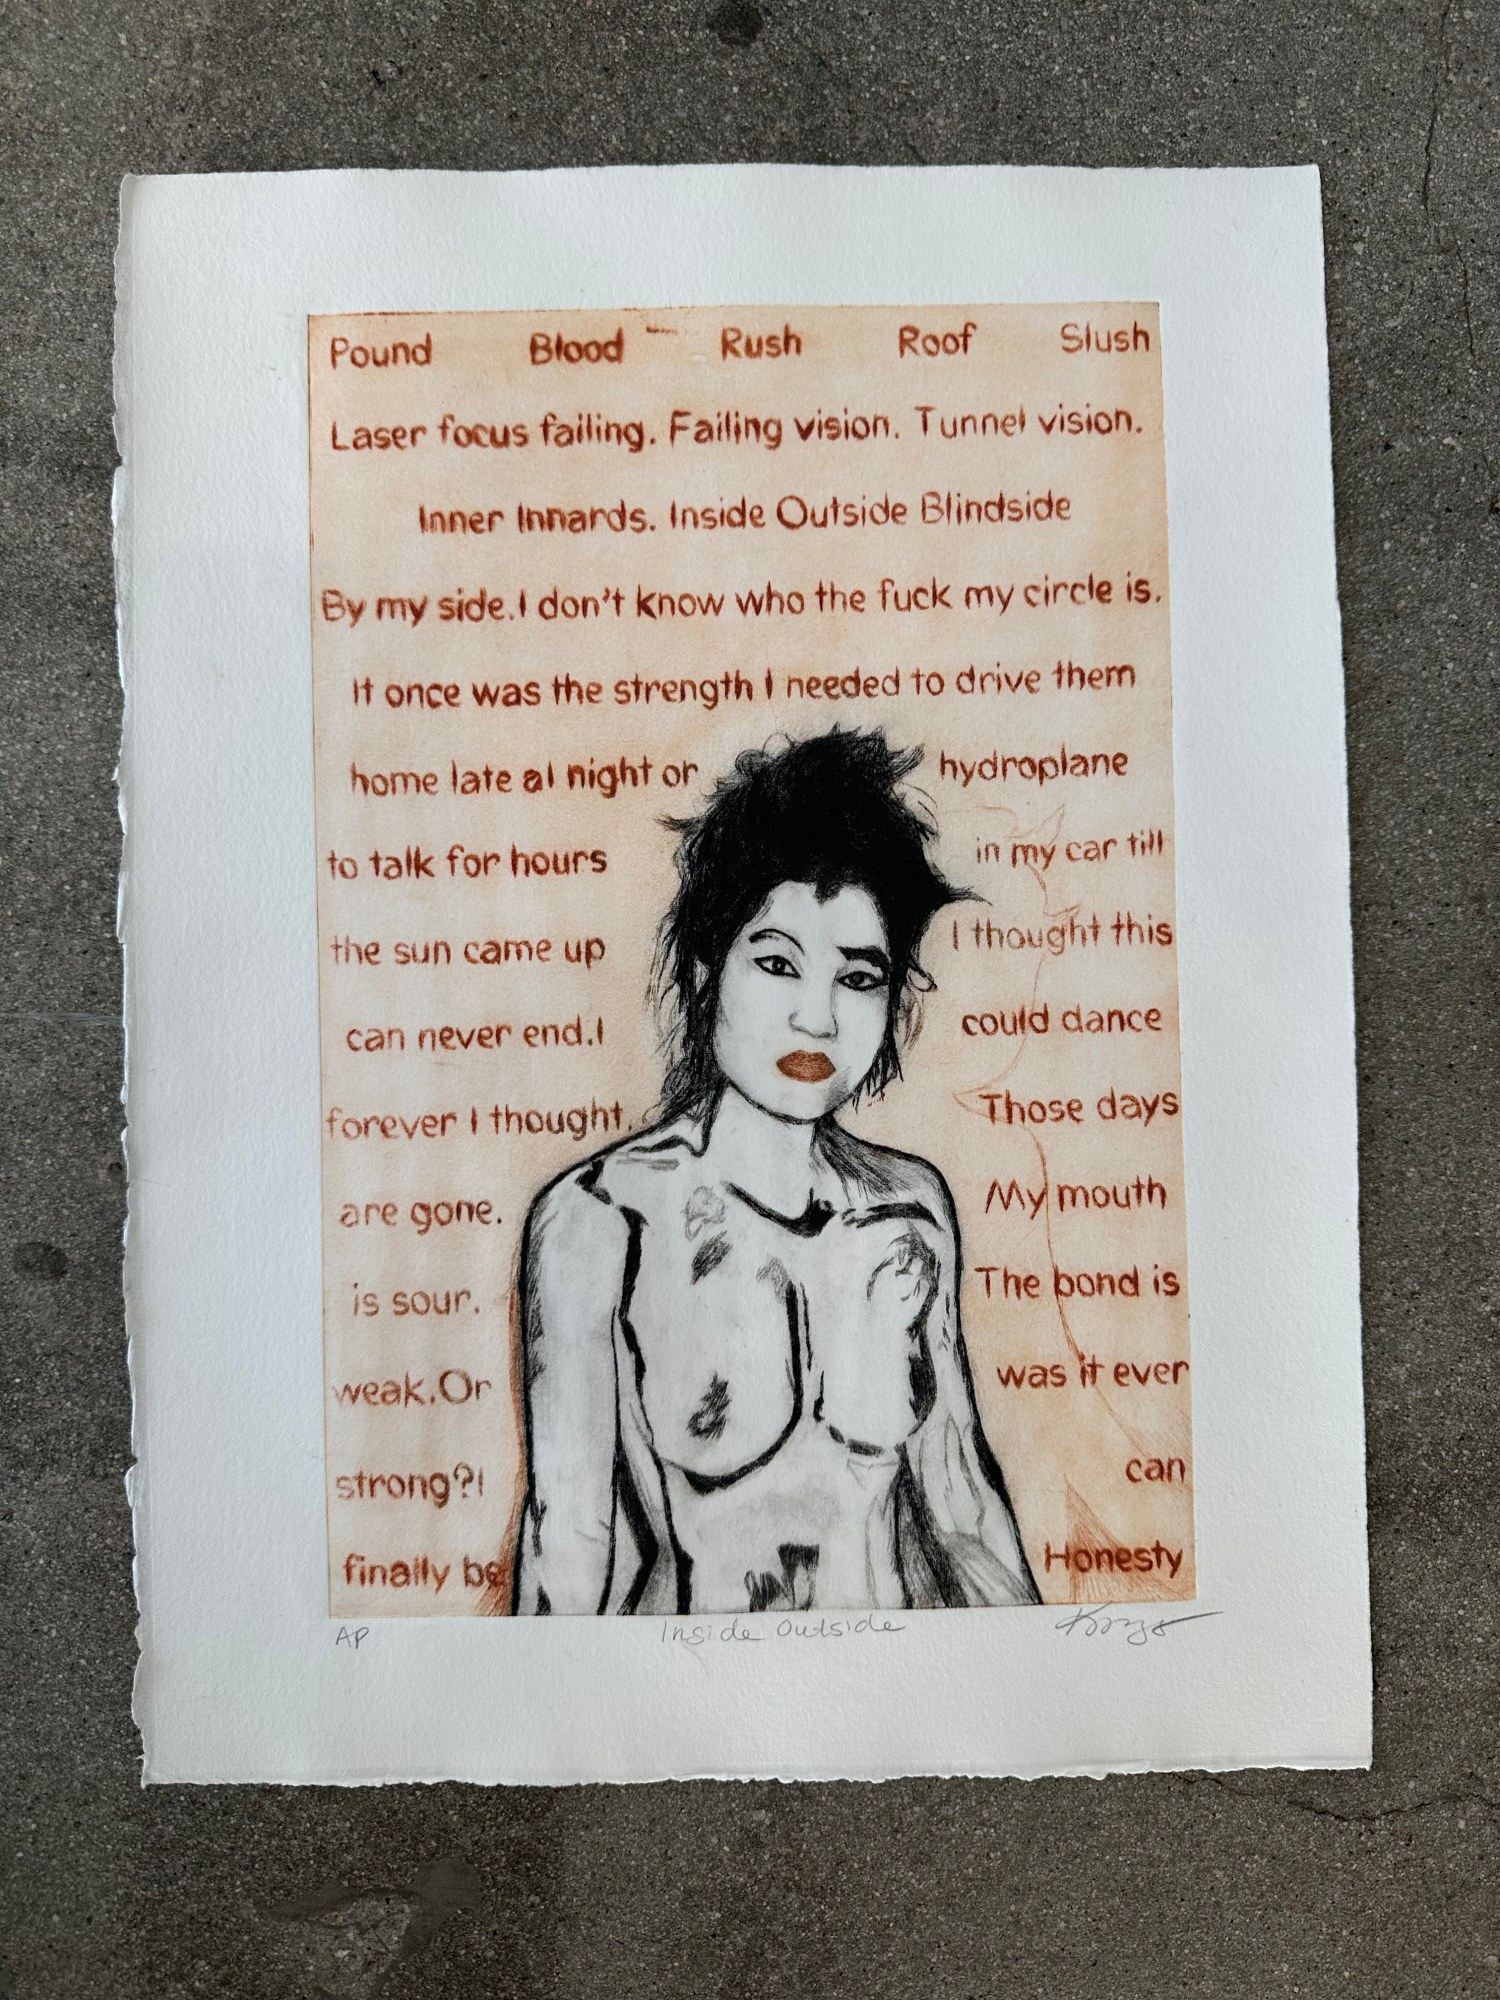 Pound Blood Rush Roof Slush
Laser focus failing. Failing vision. Tunnel vision.
Inner Innards. Inside Outside Blindside
By my side.I don't know who the fuck my circle is.
It once was the strength I needed to drive them
home late at night or hydroplane
to talk for hours in my car till
the sun came up I thought this
can never end.I could dance
forever I thought. Those days
are gone. My mouth
is sour. The bond is
weak.Or was it ever
strong?I can
finally be Honesty
AP Inside Outside